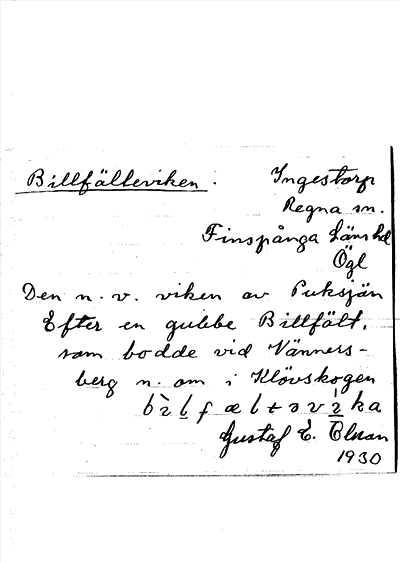 Billfälteviken.
Ingestorp
Regna sn.
Finspånga Läns hd
Ögl
Den n. v. viken av Puksjön
Efter en gubbe Billfält,
som bodde vid Vänners-
berg n. om i Klövskogen
Gustaf E. Olson
1930